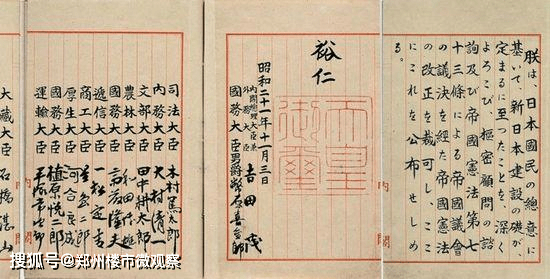 朕は、日本國民の總意に
基いて、新日本建設の礎が、
定まるに至つたことを、深く
よろこび、樞密顧問の諮
詢及び帝國憲法第七
十三條による帝國議會
の議決を経た帝國憲法
の改正を裁可し、ここ
にこれを公布せしめ
る。
內閣
裕仁
天皇御璽
昭和二十一年十一月三日
內閣總理大臣兼
外務大臣 吉田茂
國務大臣男爵幣原喜重郎
司法大臣 木村篤太郎
內務大臣 大村清一
文部大臣 田中耕太郎
農林大臣 和田博雄
國務大臣 斎藤隆夫
遞信大臣 一松定吉
商工大臣 星島二郎
厚生大臣 河合良成
國務大臣 植原悦二郎
運輸大臣 平塚常次郎
內閣
大藏大臣 石橋湛山
搜狐号@郑州楼市微观察